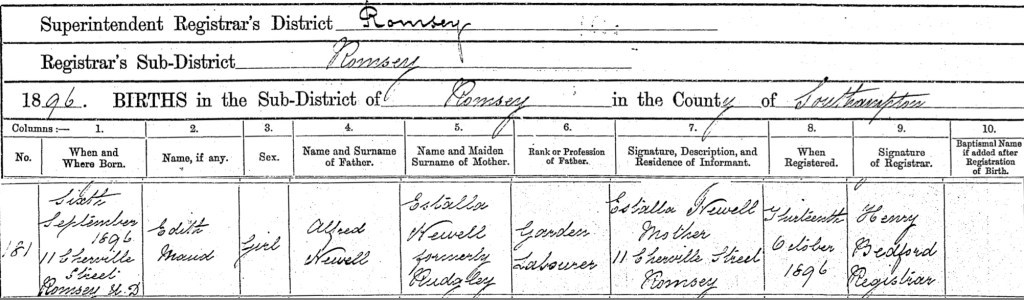 Superintendent Registrar's District Romsey
Registrar's Sub-District Romsey
1896. BIRTHS in the Sub-District of Romsey in the County of Southampton
Columns:— 1. 2. 3. 4. 5. 6. 7. 8. 9. 10.
No. When and Where Born. Name, if any. Sex. Name and Surname of Father. Name and Maiden Surname of Mother. Rank or Profession of Father. Signature, Description, and Residence of Informant. When Registered. Signature of Registrar. Baptismal Name if added after Registration of Birth.
181
Sixth
September
1896
11 Cherville
Street
Romsey U.D
Edith
Maud
Girl
Alfred
Newell
Estalla
Newell
formerly
Garden
Labourer
Estalla Newell
Mother
11 Cherville Street
Romsey
Thirteenth
October
1896
Henry
Bedford
Registrar